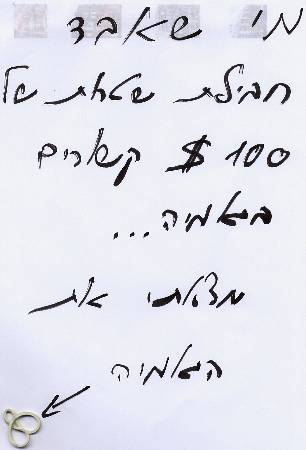 מי שאבד
חבילת שטרות של
100 $ קשורים
בגומיה...
מצאתי את
הגומיה